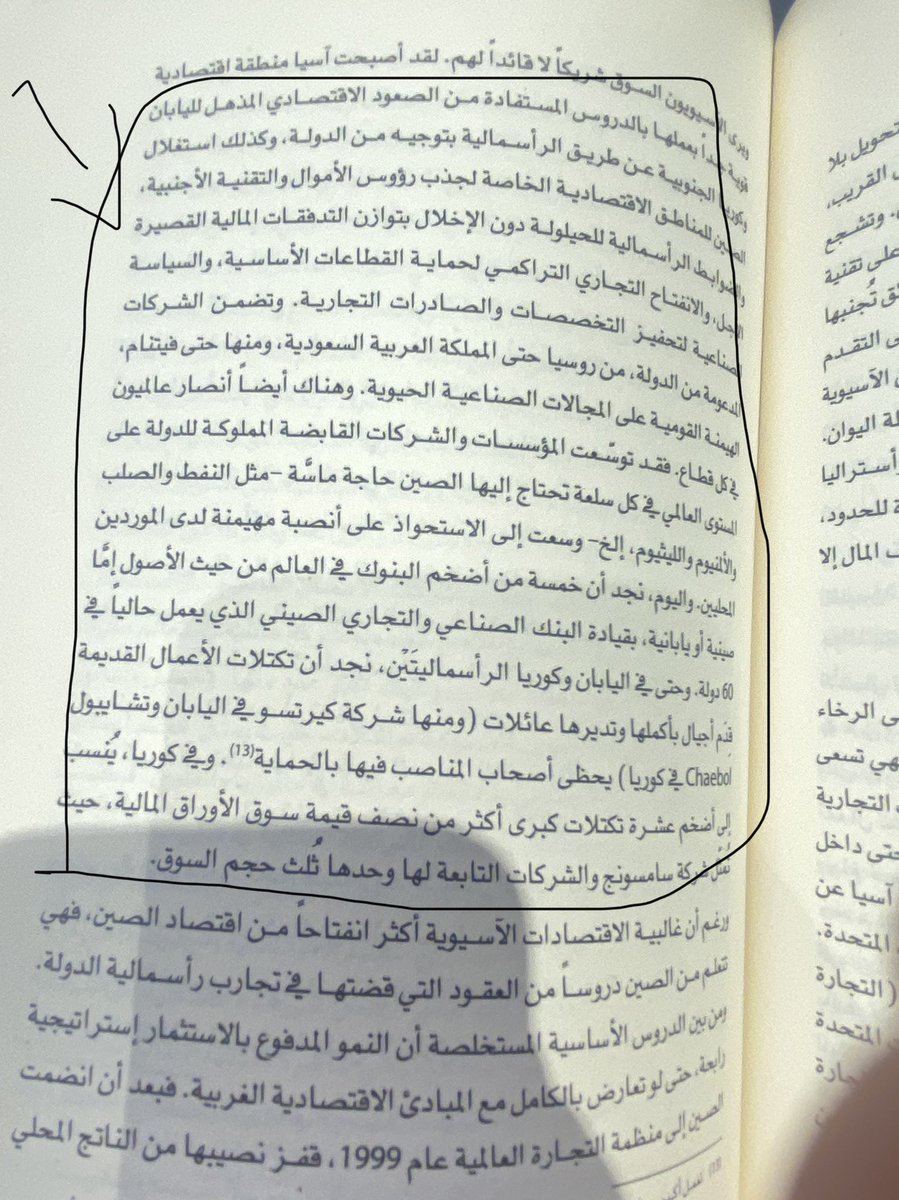 ويرى الآسيويون السوق شريكاً لا قائداً لهم. لقد أصبحت آسيا منطقة اقتصادية
قوية جداً بعملها بالدروس المستفادة من الصعود الاقتصادي المذهل لليابان
وكوريا الجنوبية عن طريق الرأسمالية بتوجيه من الدولة، وكذلك استغلال
الصين للمناطق الاقتصادية الخاصة لجذب رؤوس الأموال والتقنية الأجنبية،
والضوابط الرأسمالية للحيلولة دون الإخلال بتوازن التدفقات المالية القصيرة
الأجل، والانفتاح التجاري التراكمي لحماية القطاعات الأساسية، والسياسة
الصناعية لتحفيز التخصصات والصادرات التجارية. وتضمن الشركات
المدعومة من الدولة، من روسيا حتى المملكة العربية السعودية، ومنها حتى فيتنام،
الهيمنة القومية على المجالات الصناعية الحيوية. وهناك أيضاً أنصار عالميون
في كل قطاع. فقد توسّعت المؤسسات والشركات القابضة المملوكة للدولة على
المستوى العالمي في كل سلعة تحتاج إليها الصين حاجة ماسَّة -مثل النفط والصلب
والألنيوم والليثيوم، إلخ- وسعت إلى الاستحواذ على أنصبة مهيمنة لدى الموردين
المحليين. واليوم، نجد أن خمسة من أضخم البنوك في العالم من حيث الأصول إمَّا
صينية أو يابانية، بقيادة البنك الصناعي والتجاري الصيني الذي يعمل حالياً في
60 دولة. وحتى في اليابان وكوريا الرأسماليتَيْن، نجد أن تكتلات الأعمال القديمة
قِدَم أجيال بأكملها وتديرها عائلات (ومنها شركة كيرتسو في اليابان وتشايبول
Chaebol في كوريا) يحظى أصحاب المناصب فيها بالحماية(13). وفي كوريا، يُنسب
إلى أضخم عشرة تكتلات كبرى أكثر من نصف قيمة سوق الأوراق المالية، حيث
تُمثّل شركة سامسونج والشركات التابعة لها وحدها ثُلث حجم السوق.
ورغم أن غالبية الاقتصادات الآسيوية أكثر انفتاحاً من اقتصاد الصين، فهي
تتعلم من الصين دروساً من العقود التي قضتها في تجارب رأسمالية الدولة.
ومن بين الدروس الأساسية المستخلصة أن النمو المدفوع بالاستثمار إستراتيجية
رابعة، حتى لو تعارض بالكامل مع المبادئ الاقتصادية الغربية. فبعد أن انضمت
الصين إلى منظمة التجارة العالمية عام 1999، قفز نصيبها من الناتج المحلي
(13)
تحويل بلا
القريب،
وتشجع
على تقنية
تُجنبها
التقدم
الآسيوية
اليوان.
أستراليا
للحدود،
المال إلا
الرخاء
تسعى
التجارية
حتى داخل
آسيا عن
المتحدة.
(التجارة
المتحدة